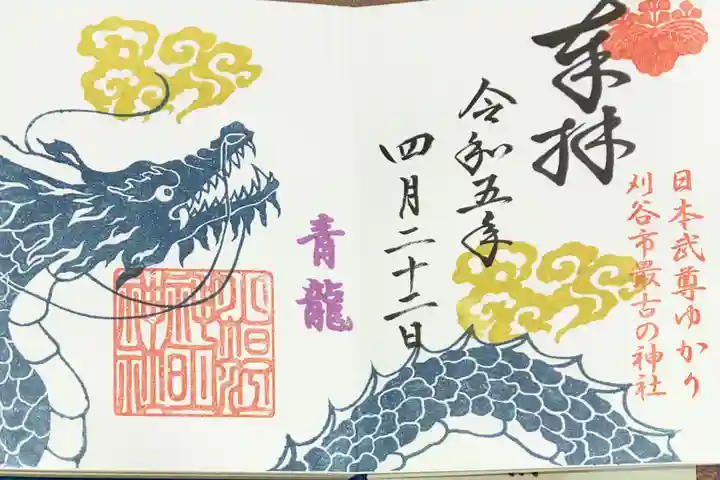 奉拝
日本武尊ゆかり
刈谷市最古の神社
令和五年
四月二十二日
青龍